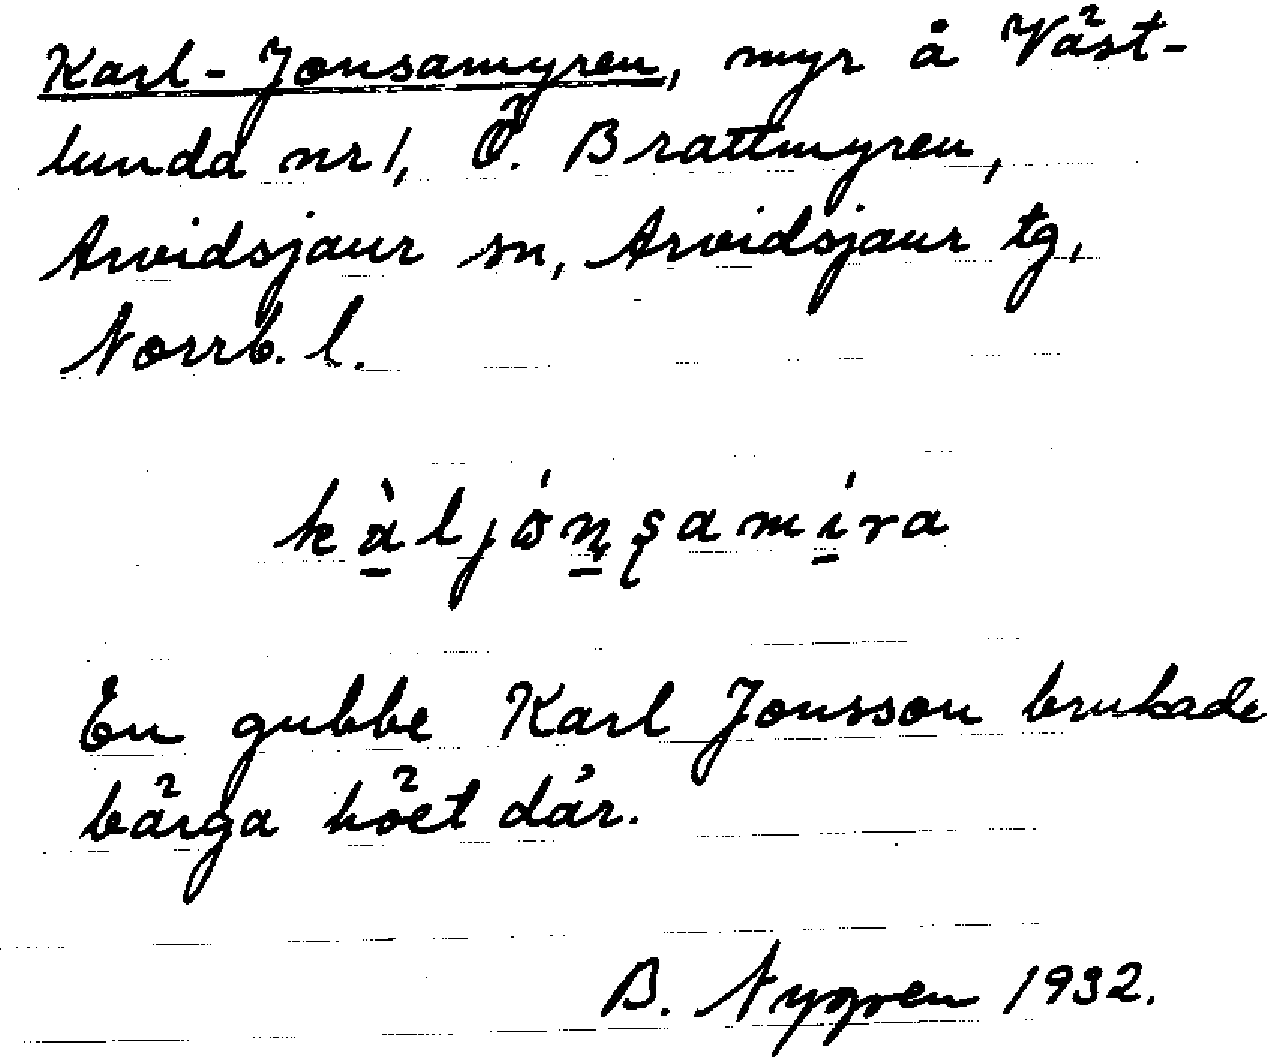 Karl-Jonsamyren, myr å Väst-
lunda nr 1, Ö. Brattmyren,
Arvidsjaur sn, Arvidsjaur tg,
Norrb. l.
kàljónsamíra
En gubbe Karl Jonsson brukade
bärga höet där.
B. Nygren 1932.